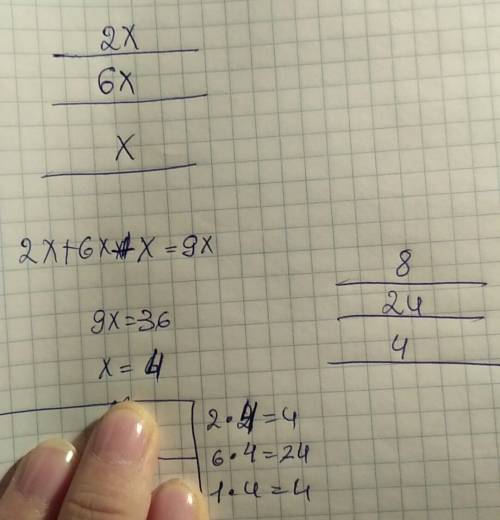 2x
6x
x
2x+6x+x=9x
9x=36
x=4
8
24
4
2·4=4
6·4=24
1·4=4